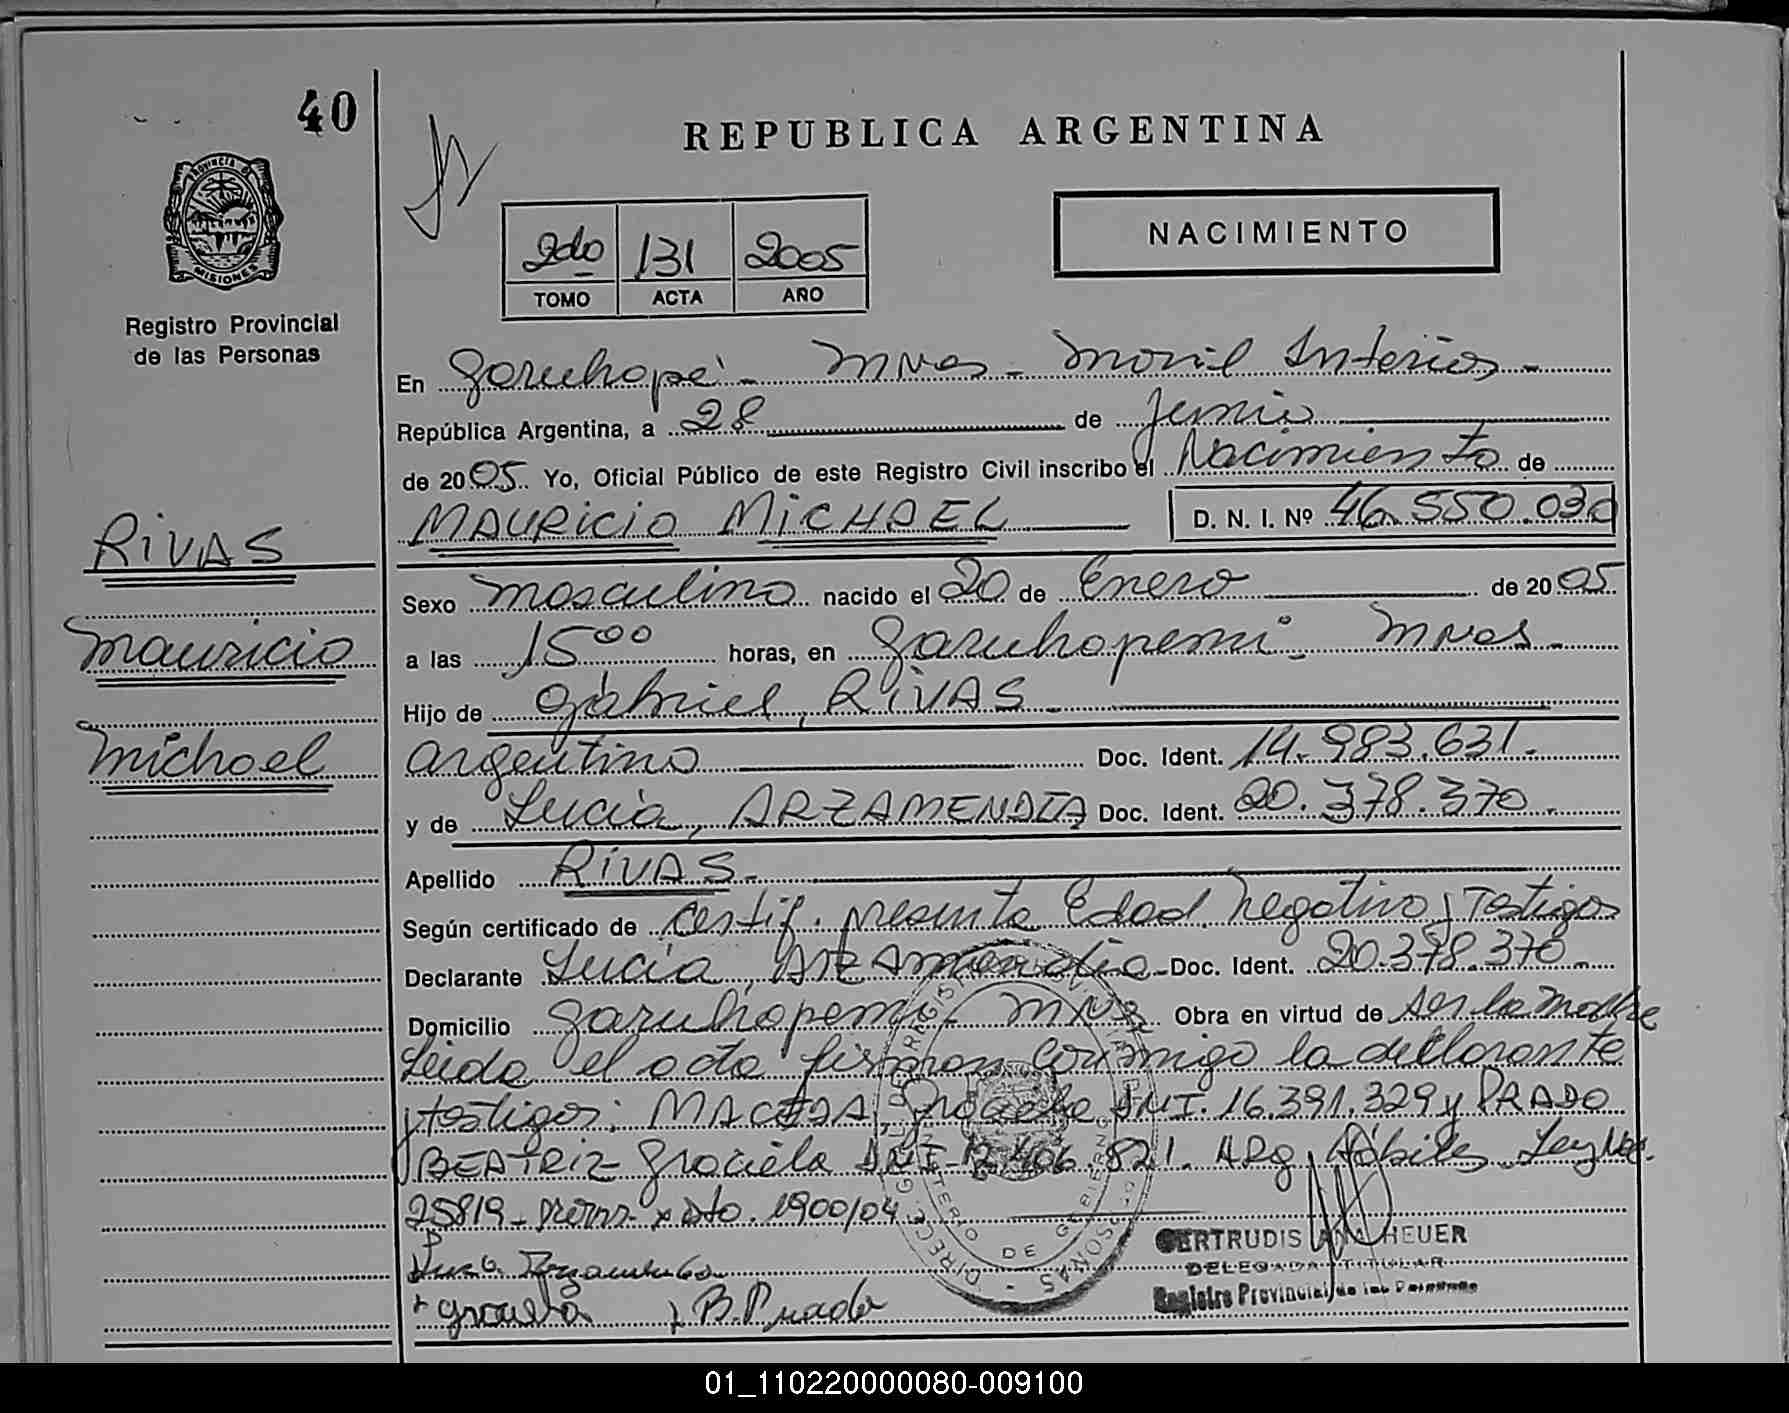 40
REPUBLICA ARGENTINA
PROVINCIA DE
MISIONES
Registro Provincial
de las Personas
2do 131 2005
TOMO ACTA AÑO
NACIMIENTO
En Garuhapé - Mnes - Movil Interior -
República Argentina, a 28 de Junio
de 2005. Yo, Oficial Público de este Registro Civil inscribo el Nacimiento de
MAURICIO MICHAEL D. N. I. Nº 46.550.030
RIVAS
Mauricio
Michael
Sexo masculino nacido el 20 de Enero de 2005.
a las 15 00 horas, en Garuhapemi - Mnes -
Hijo de Gabriel, RIVAS -
argentino Doc. Ident. 14.983.631.
y de Lucia, ARZAMENDIA Doc. Ident. 20.378.370.
Apellido RIVAS -
Según certificado de certif. presunta Edad, Negativo y Testigos
Declarante Lucia, ARZAmendia - Doc. Ident. 20.378.370 -
Domicilio Garuhapemi - Mnes Obra en virtud de ser la Madre
Leida el acta firman conmigo la declarante
y testigos: Graciela DNI. 16.391.329 y PRADO
BEATRIZ Graciela DNI 821. ARg. Hábiles. Ley Nac.
25819 - Dto. 1900/04
B. Prado
GERTRUDIS HEUER
DELEGADA TITULAR
Registro Provincial de las Personas
01_110220000080-009100